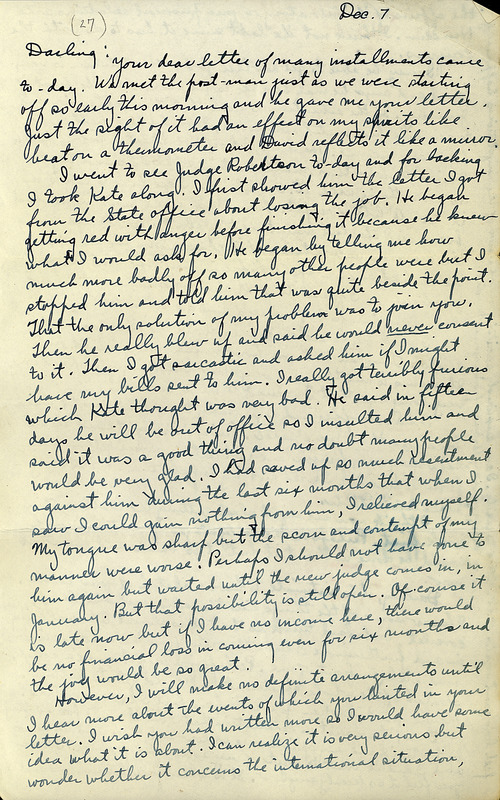 (27)
Dec. 7
Darling: Your dear letter of many installments came
to-day. We met the post-man just as we were starting
off so early this morning and he gave me your letter.
Just the sight of it had an effect on my spirits like
heat on a thermometer and David reflects it like a mirror.
I went to see Judge Robertson to-day and for backing
I took Kate along. I first showed him the letter I got
from the State office about losing the job. He began
getting red with anger before finishing it because he knew
what I would ask for. He began by telling me how
much more badly off so many other people were but I
stopped him and told him that was quite beside the point.
That the only solution of my problem was to join you.
Then he really blew up and said he would never consent
to it. Then I got sarcastic and asked him if I might
have my bills sent to him. I really got terribly furious
which Kate thought was very bad. He said in fifteen
days he will be out of office so I insulted him and
said it was a good thing and no doubt many people
would be very glad. I had saved up so much resentment
against him during the last six months that when I
saw I could gain nothing from him, I relieved myself.
My tongue was sharp but the scorn and contempt of my
manner were worse. Perhaps I should not have gone to
him again but waited until the new judge comes in, in
January. But that possibility is still open. Of course it
is late now but if I have no income here, there would
be no financial loss in coming even for six months and
the joy would be so great.
However, I will make no definite arrangements until
I hear more about the events of which you hinted in your
letter. I wish you had written more so I would have some
idea what it is about. I can realize it is very serious but
wonder whether it concerns the international situation,